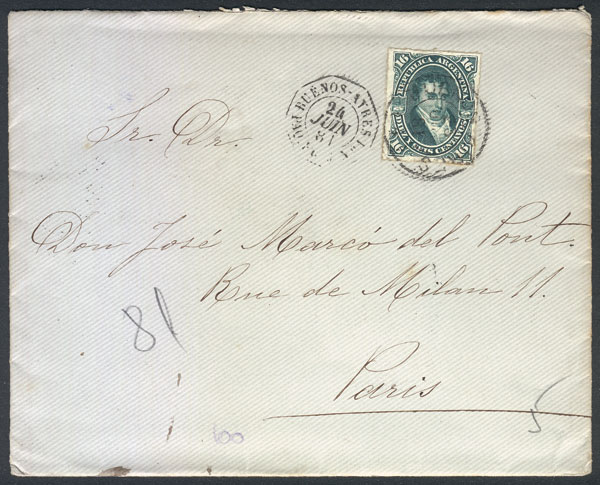 16 16
REPUBLICA ARGENTINA
DIEZ Y SEIS CENTAVOS
16 16
BUENOS-AYRES
24
JUIN
81
Sr. Dr.
Don José Marcó del Pont.
Rue de Milan 11.
Paris
81
100
5